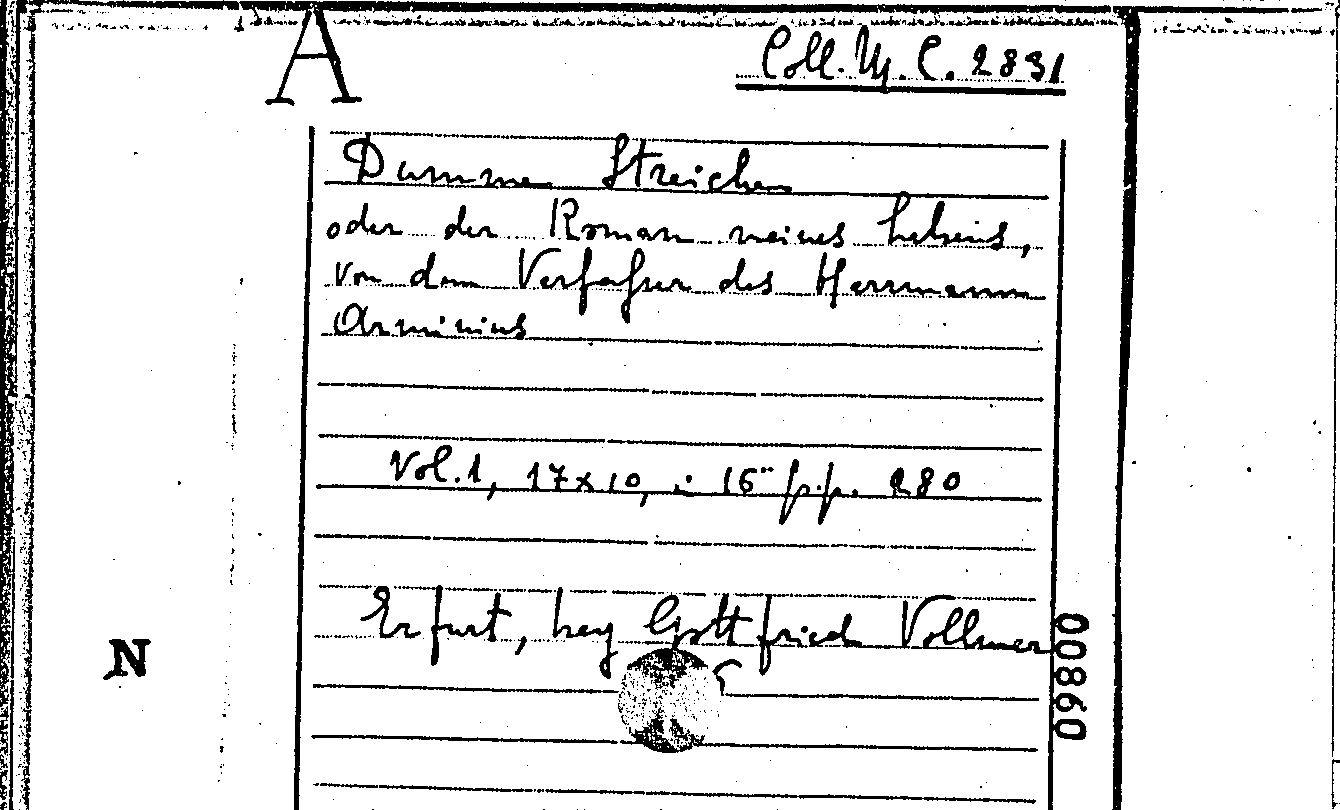 A
Coll. M. C. 2831
Dumme Streiche
oder der Roman meines Lebens,
von dem Verfaßer des Herrmann
Arminius
Vol. 1, 17x10, in 16° p.p. 280
Erfurt, bey Gottfried Vollmer
N
00860